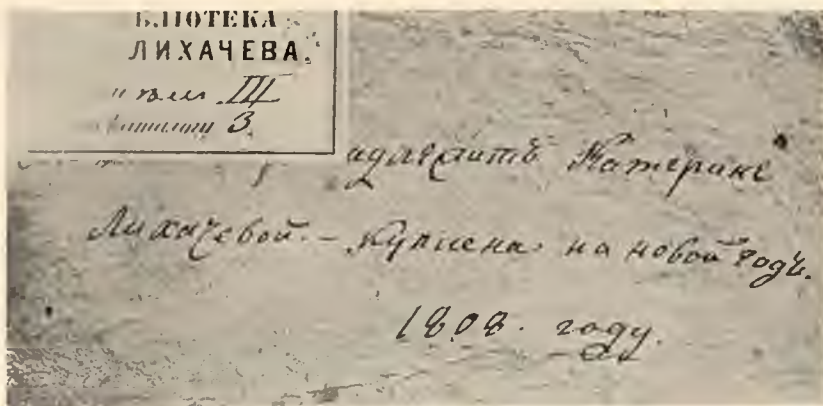 БЛІОТЕКА
ЛИХАЧЕВА.
III
3
Катерине
Лихачевой. – Куплена на новой годъ.
1808. году.